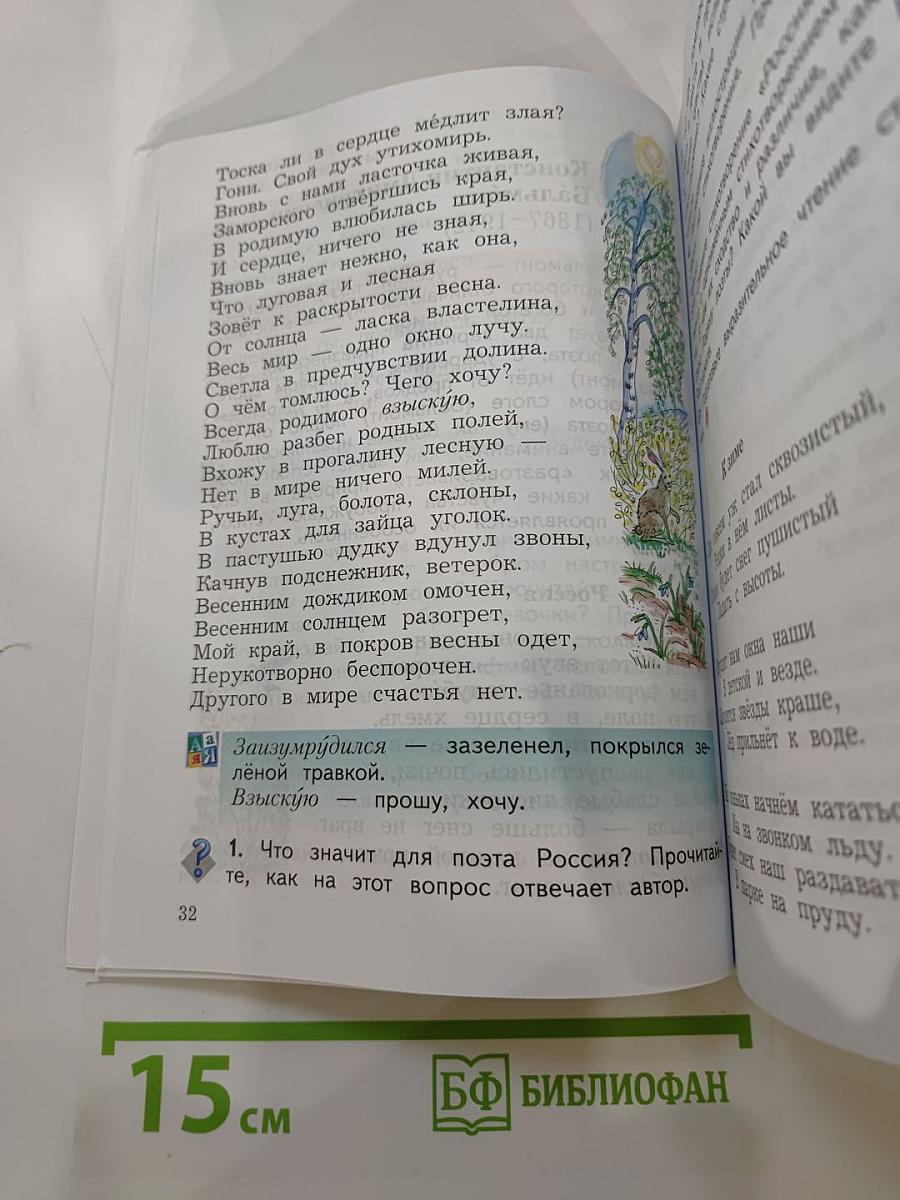 Тоска ли в сердце ме́длит злая?
Гони. Свой дух утихомирь.
Вновь с нами ласточка живая,
Заморского отве́ргшись края,
В родимую влюбилась ширь.
И сердце, ничего не зная,
Вновь знает нежно, как она,
Что луговая и лесная
Зовёт к раскрытости весна.
От солнца — ласка властелина,
Весь мир — одно окно лучу.
Светла в предчувствии долина.
О чём томлюсь? Чего хочу?
Всегда родимого взыску́ю,
Люблю разбег родных полей,
Вхожу в прогалину лесную —
Нет в мире ничего милей.
Ручьи, луга, болота, склоны,
В кустах для зайца уголок.
В пастушью дудку вдунул звоны,
Качнув подснежник, ветерок.
Весенним дождиком омочен,
Весенним солнцем разогрет,
Мой край, в покров весны одет,
Нерукотворно беспорочен.
Другого в мире счастья нет.
А а Я Я
Заизумру́дился — зазеленел, покрылся зе-
лёной травкой.
Взыску́ю — прошу, хочу.
? 1. Что значит для поэта Россия? Прочитай-
те, как на этот вопрос отвечает автор.
32
видите
выразительное чтение
К зиме
уж стал сквозистый,
в нём листы.
снег пушистый
с высоты.
окна наши
и везде.
звёзды краше,
прильнёт к воде.
начнём кататьс
на звонком льду.
смех наш раздават
В парке на пруду.
15 см
БФ БИБЛИОФАН